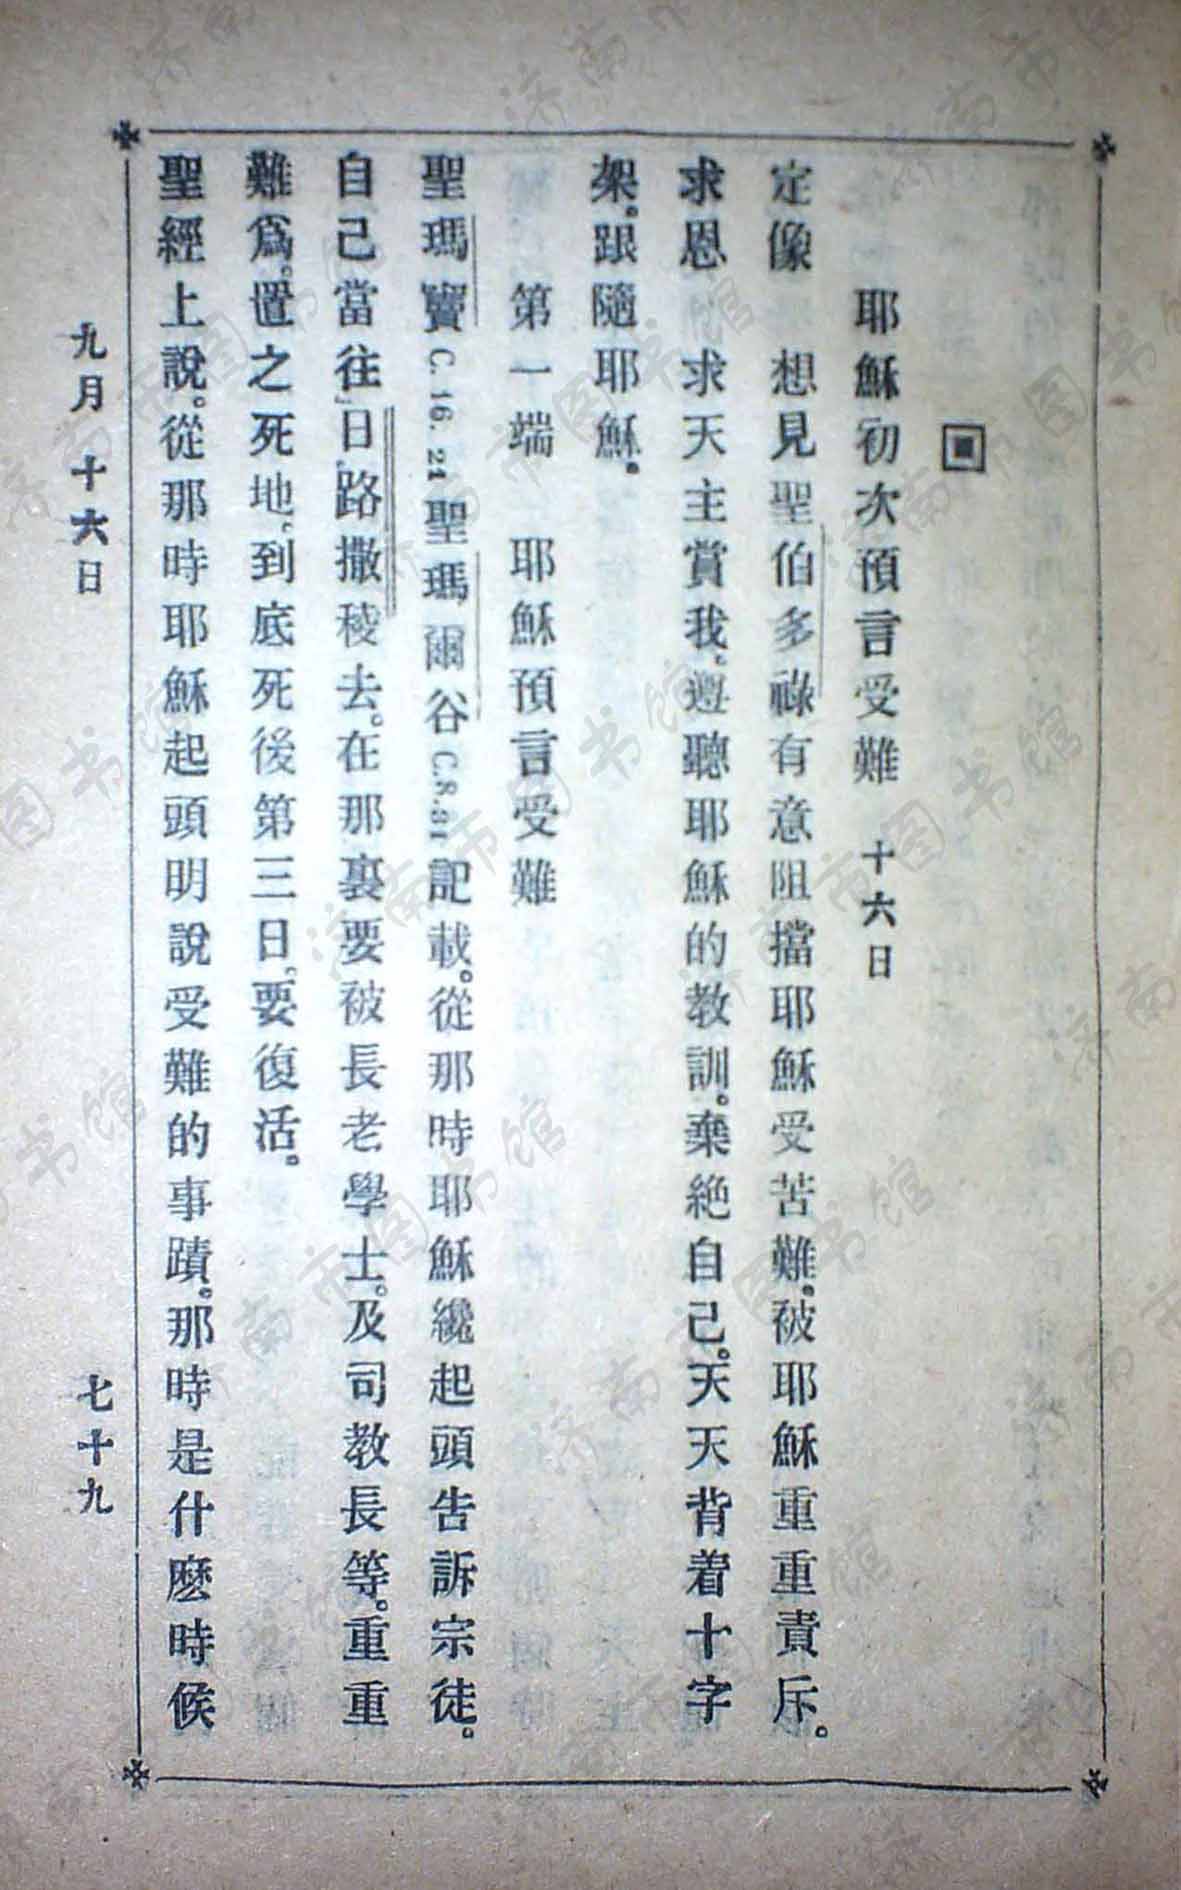 耶穌初次預言受難　十六日
定像　想見聖伯多祿有意阻擋耶穌受苦難。被耶穌重重責斥。
求恩　求天主賞我。遵聽耶穌的教訓。棄絕自己。天天背着十字
架。跟隨耶穌。
第一端　耶穌預言受難
聖瑪竇C. 16. 21聖瑪爾谷C. 8. 31記載。從那時耶穌纔起頭告訴宗徒。
自己當往日路撒稜去。在那裏要被長老學士。及司教長等。重重
難爲。置之死地。到底死後第三日。要復活。
聖經上說。從那時耶穌起頭明說受難的事蹟。那時是什麽時候
九月十六日
七十九
济南市图书馆